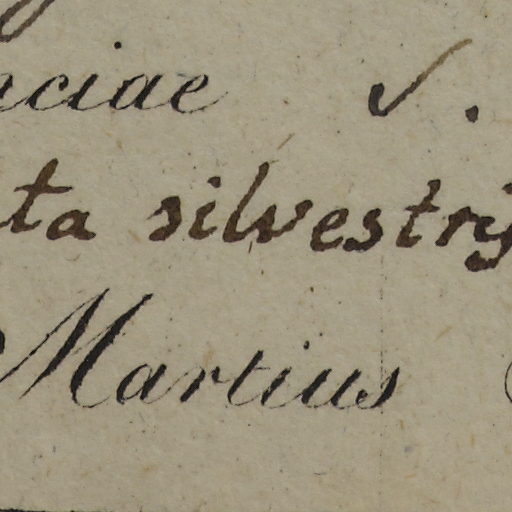 nciae ✓.
ta silvestris
Martius